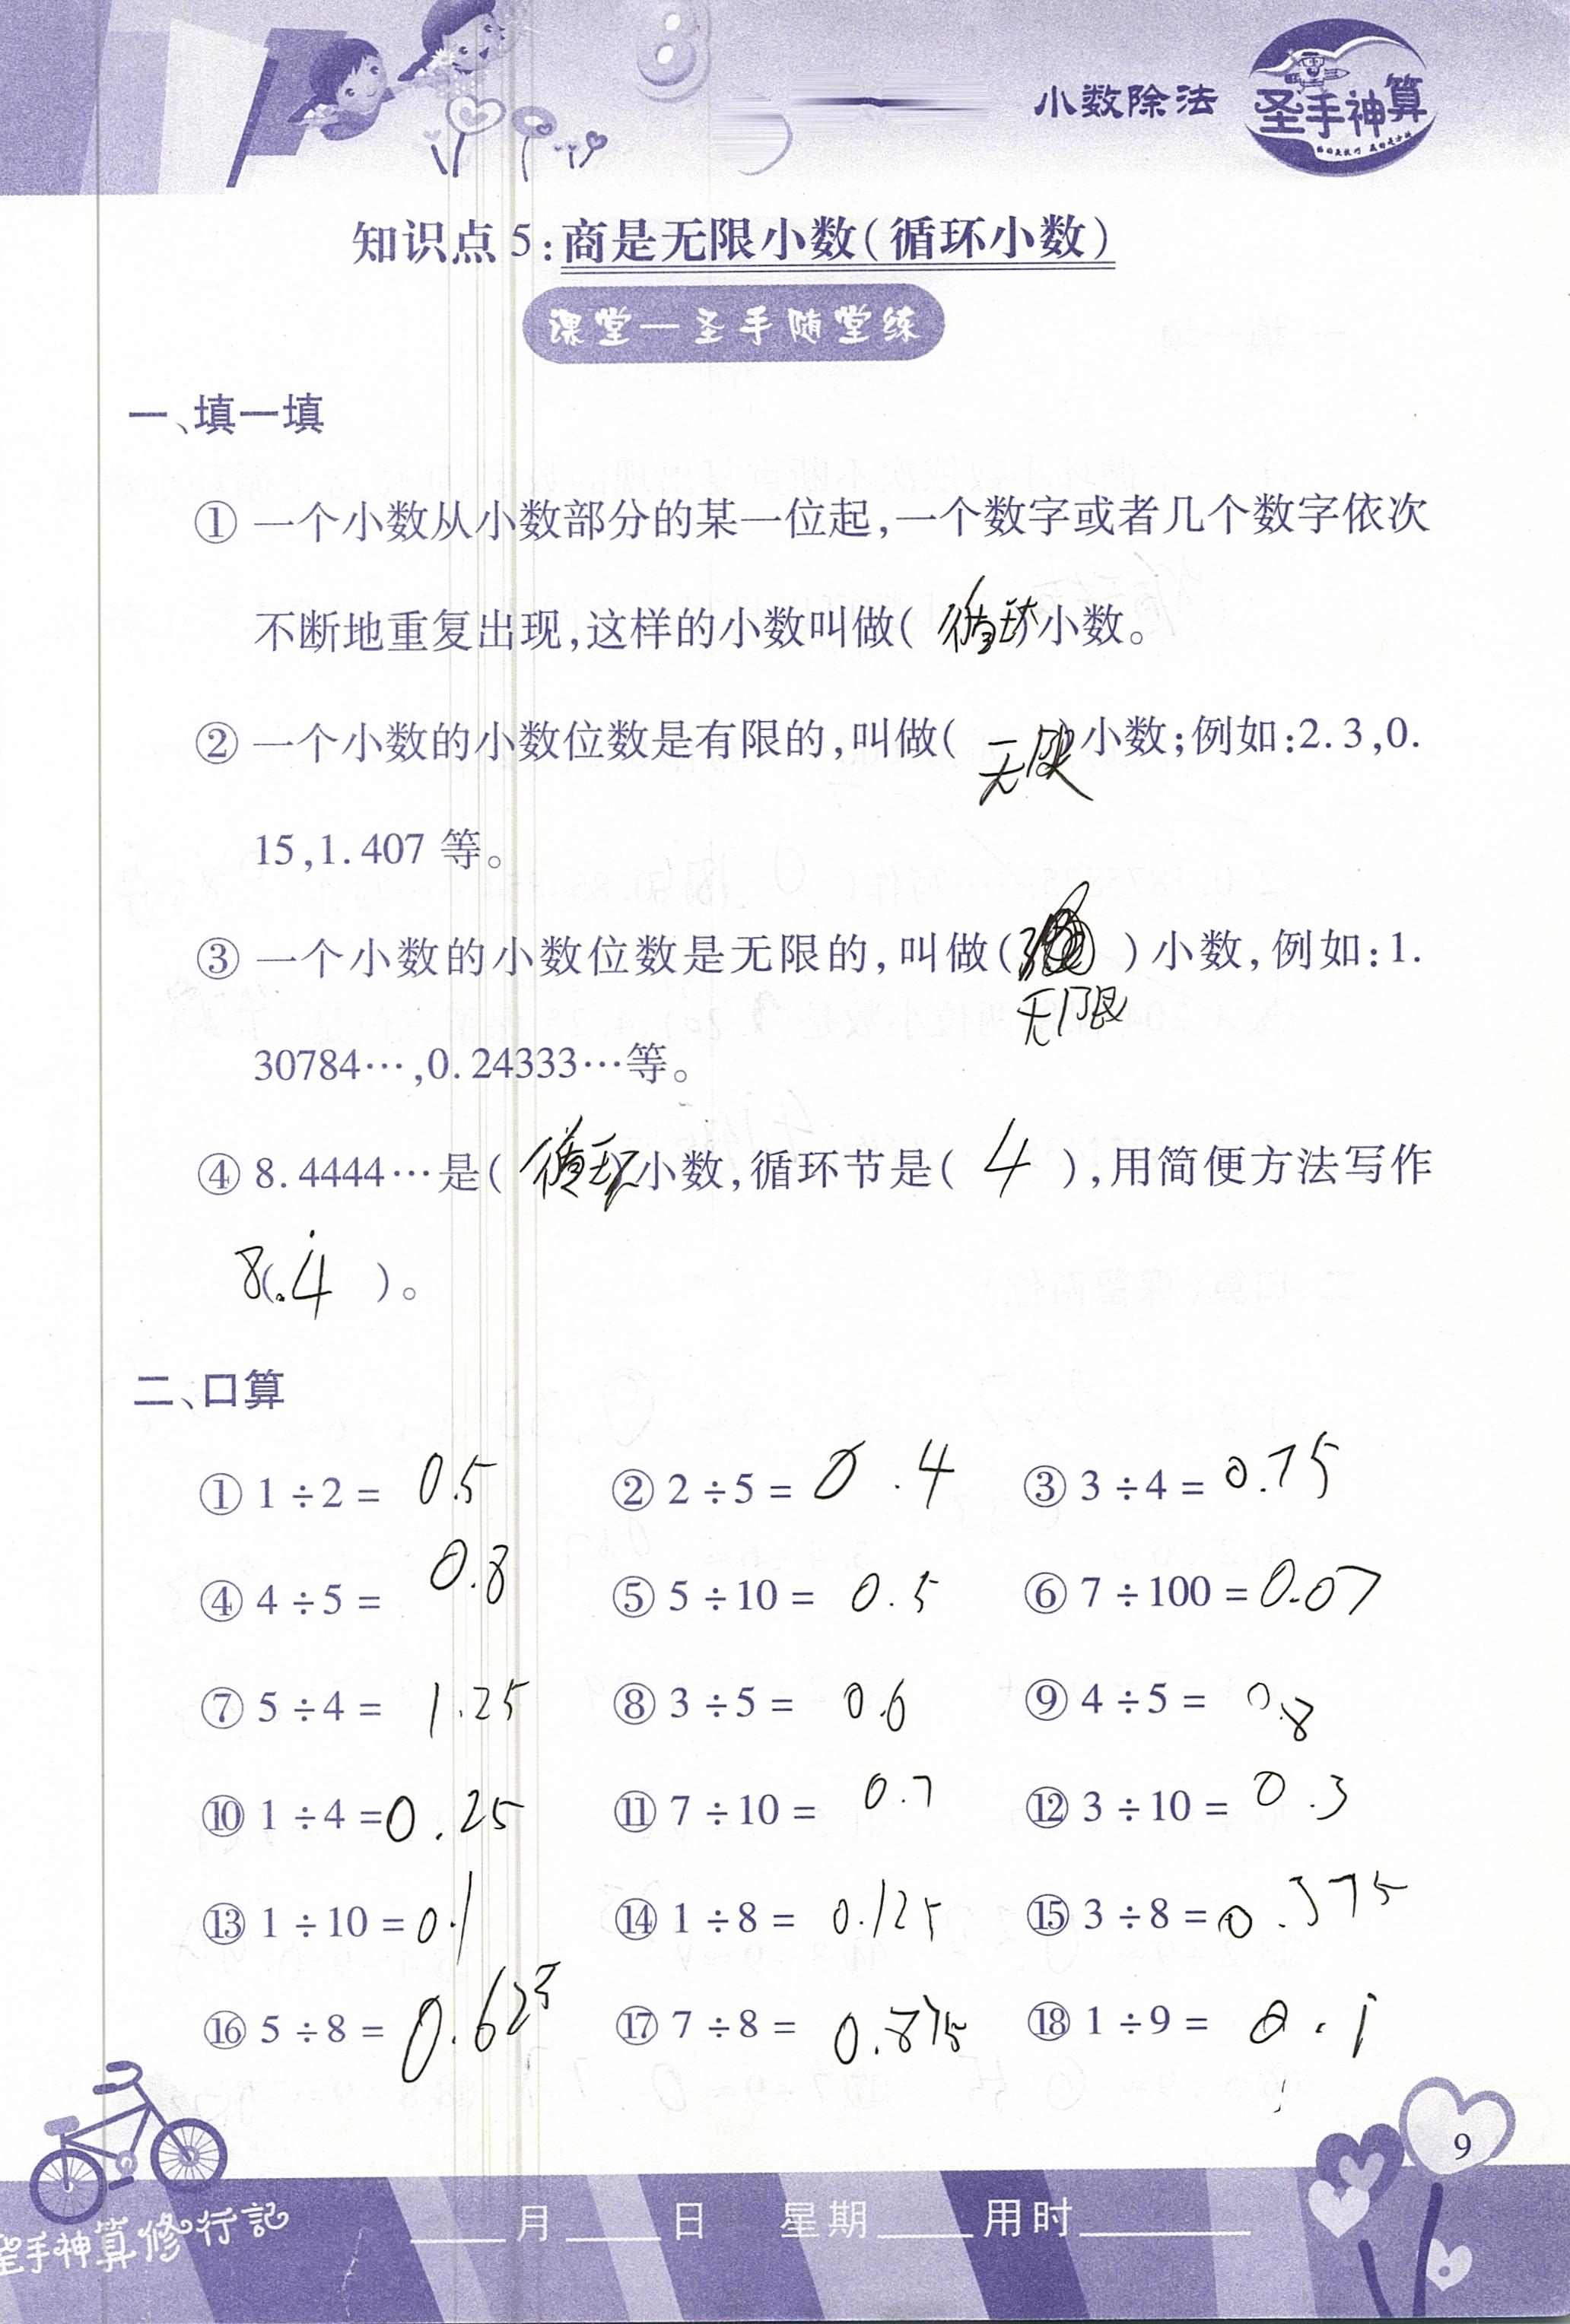 小数除法 圣手神算
知识点 5:商是无限小数(循环小数)
课堂—圣手随堂练
一、填一填
① 一个小数从小数部分的某一位起,一个数字或者几个数字依次
不断地重复出现,这样的小数叫做( 循环 小数。
② 一个小数的小数位数是有限的,叫做( 无限 )小数;例如:2.3,0.
15,1.407 等。
③ 一个小数的小数位数是无限的,叫做( )小数,例如:1.
无限
30784…,0.24333…等。
④ 8.4444…是( 循环 小数,循环节是( 4 ),用简便方法写作
8(.4̇ )。
二、口算
① 1÷2= 0.5 ② 2÷5= 0.4 ③ 3÷4= 0.75
④ 4÷5= 0.8 ⑤ 5÷10= 0.5 ⑥ 7÷100= 0.07
⑦ 5÷4= 1.25 ⑧ 3÷5= 0.6 ⑨ 4÷5= 0.8
⑩ 1÷4= 0.25 ⑪ 7÷10= 0.7 ⑫ 3÷10= 0.3
⑬ 1÷10= 0.1 ⑭ 1÷8= 0.125 ⑮ 3÷8= 0.375
⑯ 5÷8= 0.625 ⑰ 7÷8= 0.875 ⑱ 1÷9= 0.1̇
9
圣手神算修行記
____月____日 星期____用时______